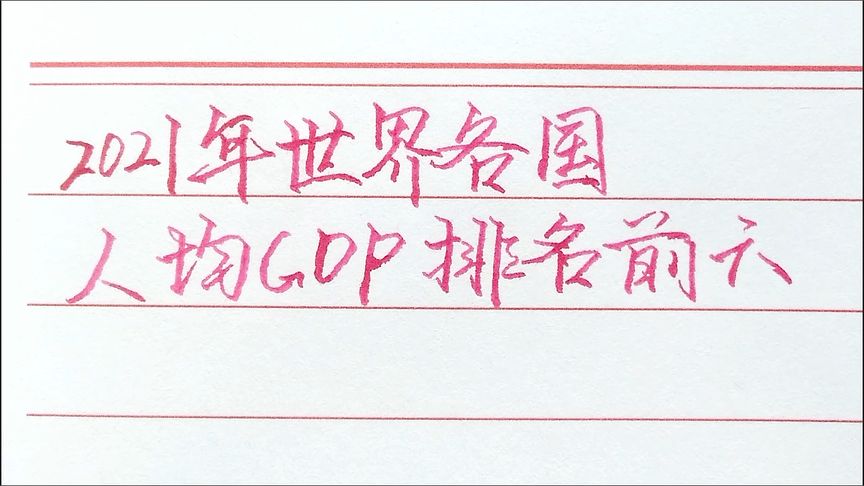 2021年世界各国
人均GDP排名前六